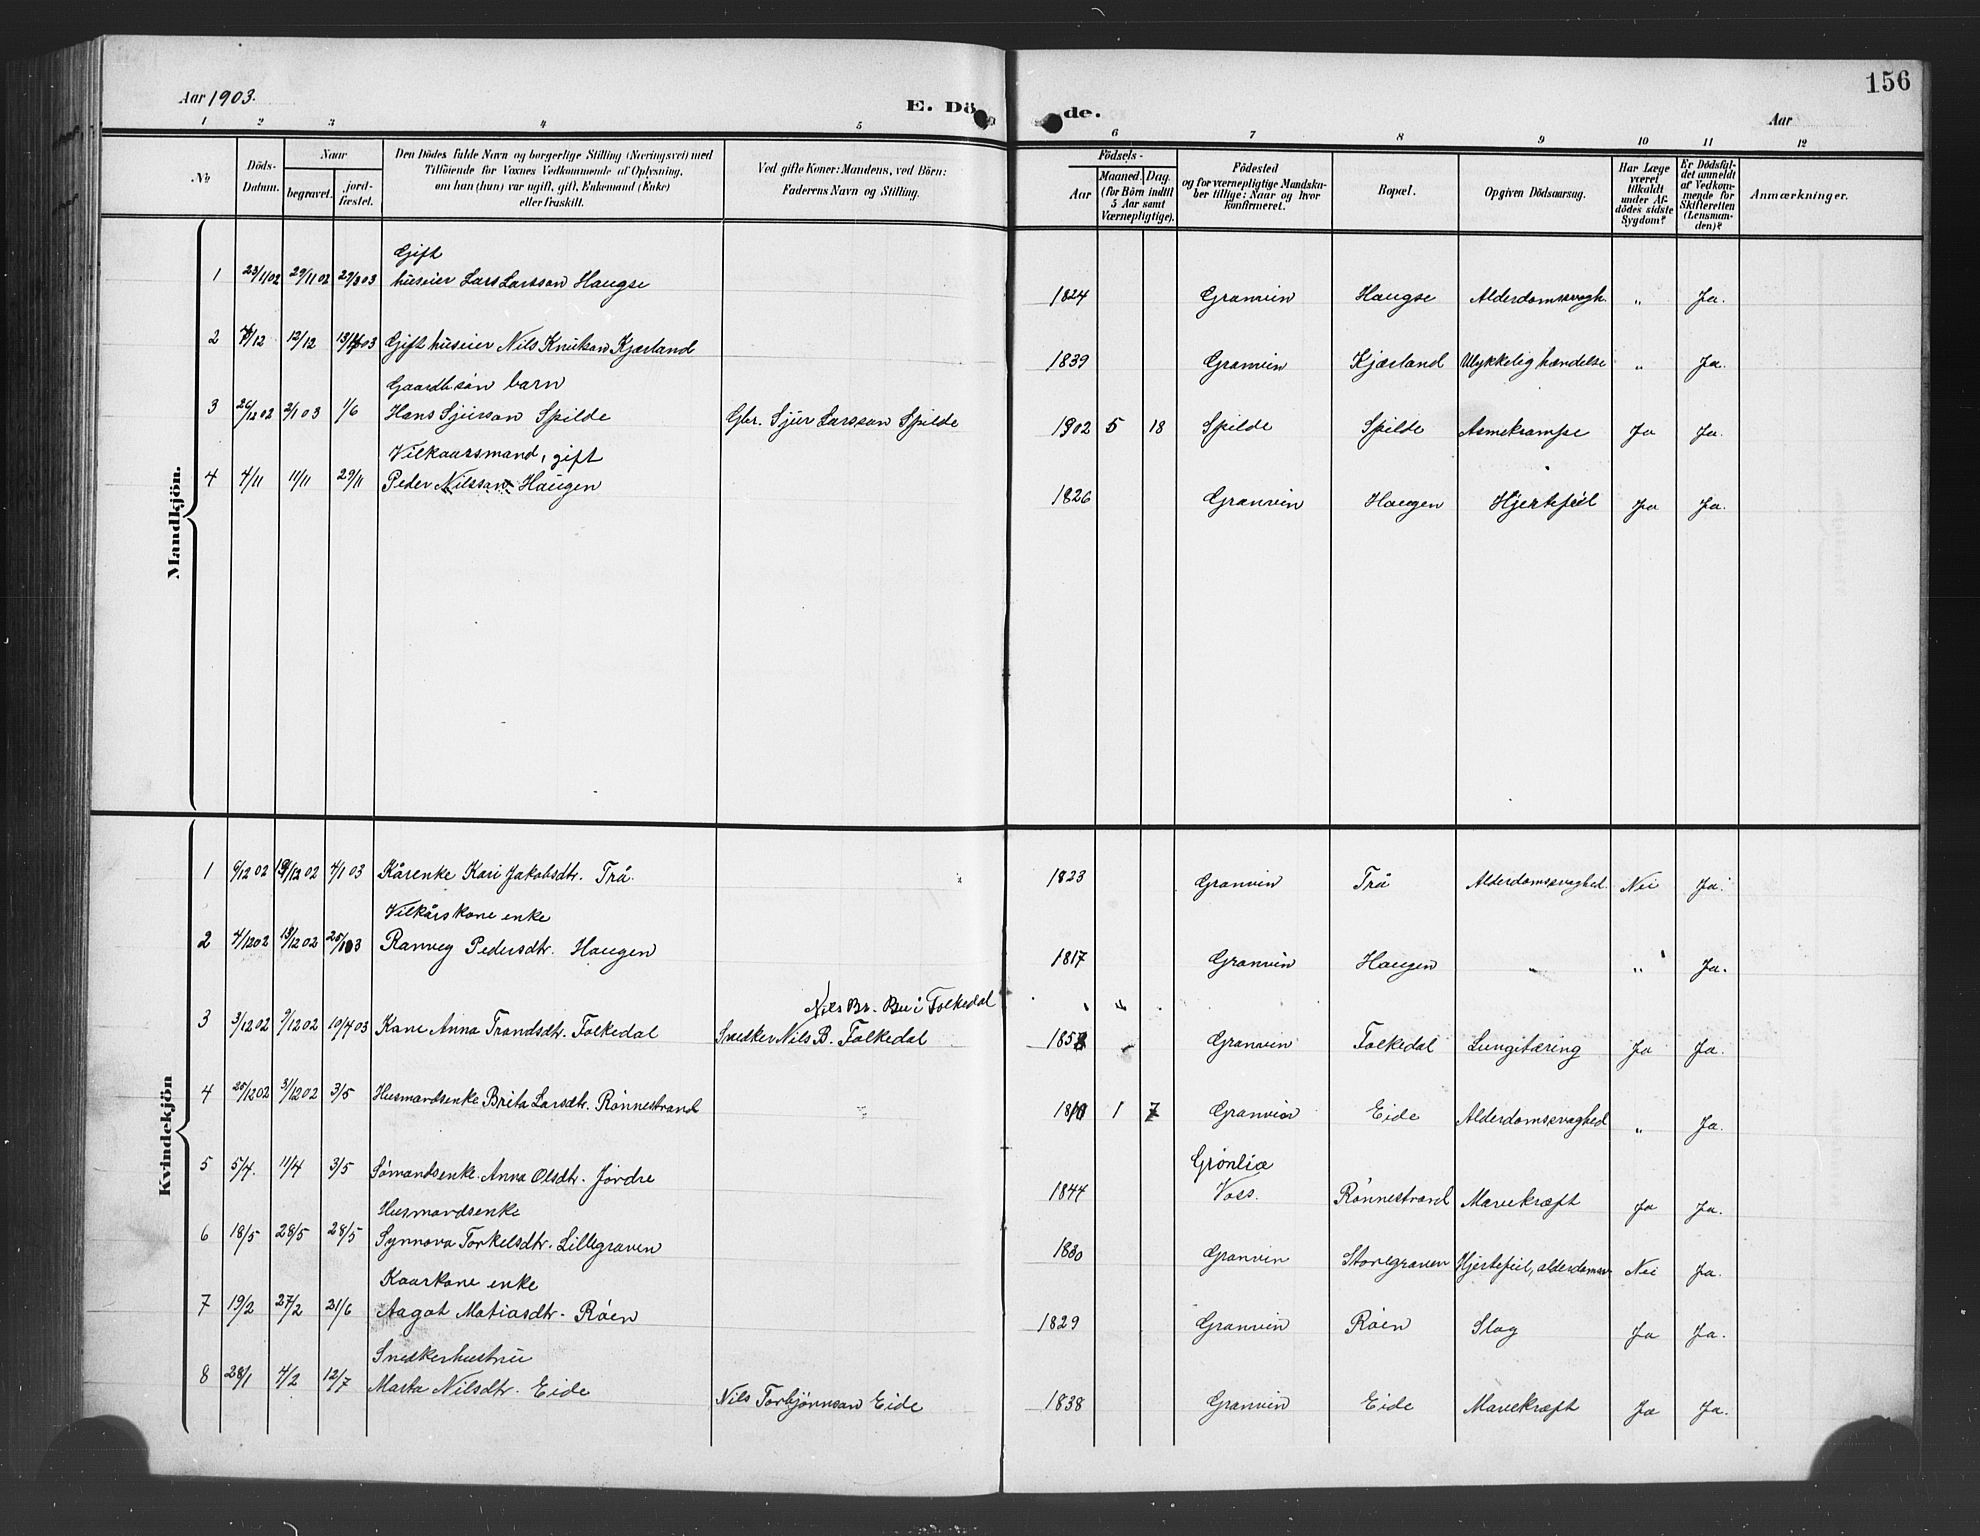 156
Aar 1903.
E. Dö
de.
Aar
1 2 3 4 5 6 7 8 9 10 11 12
No
Döds-
Datum.
Naar
begravet.
jord-
fæstet.
Den Dödes fulde Navn og borgerlige Stilling (Næringsvei) med
Tilföiende for Voxnes Vedkommende af Oplysning,
om han (hun) var ugift, gift, Enkemand (Enke)
eller fraskilt.
Ved gifte Koner: Mandens, ved Börn:
Faderens Navn og Stilling.
Födsels-
Aar
Maaned. Dag.
(for Börn indtil
5 Aar samt
Værnepligtige).
Födested
og for værnepligtige Mandska-
ber tillige: Naar og hvor
konfirmeret.
Bopæl.
Opgiven Dödsaarsag.
Har Læge
været
tilkaldt
under Af-
dödes sidste
Sygdom?
Er Dödsfal-
det anmeldt
af Vedkom-
mende for
Skifteretten
(Lensman-
den)?
Anmærkninger.
Mandkjön.
Gift
1 23/11 02 29/11 02 29/3 03 husier Lars Larsson Haugse 1824 Granvin Haugse Alderdomssvagh. „ Ja.
2 /12 12/12 03 Gift husier Nils Knutson Kjærland 1839 Granvin Kjærland Ulykkelig hændelse „ Ja.
Gaardb.søn barn
3 26/12 02 2/1 03 1/6 Hans Sjursson Spilde Gbr. Sjur Larsson Spilde 1902 5 18 Spilde Spilde Asmekrampe Ja Ja.
Vilkaarsmand, gift
4 4/11 11/11 29/11 Peder Nilsson Haugen 1826 Granvin Haugen Hjertefeil Ja Ja.
Kvindekjön
1 6/12 02 /12 02 4/1 03 Kårenke Kari Jakobsdtr. Trå 1823 Granvin Trå Alderdomssvaghed. Nei Ja.
Vilkårskone enke
2 4/12 02 13/12 02 25/1 03 Ranveg Pedersdtr. Haugen 1817 Granvin Haugen „ „ Ja.
Nils Br. Bu i Folkedal
3 3/12 02 9/12 02 10/4 03 Kone Anna Trondsdtr. Folkedal Snedker Nils B. Folkedal 1858 Granvin Folkedal Lungitæring Ja Ja.
4 25/12 02 31/12 02 3/5 Husmandsenke Brita Larsdtr. Rønnestrand 1 7 Granvin Eide Alderdomssvaghed „ Ja.
Grønlia
5 5/4. 11/4 3/5 Sømandsenke Anna Olsdtr. Jordre 1844 Voss. Rønnestrand Mavekræft Ja Ja.
Husmandsenke
6 18/5 28/5 28/5 Synnova Torkelsdtr. Lillegraven 1830 Granvin Storegraven Hjertefeil, alderdomsv Nei Ja.
Kaarkone enke
7 19/2 27/2 21/6 Aagot Matiasdtr. Røen 1829 Granvin Røen Slag Ja Ja.
Snedkerhustru
8 28/1 4/2 12/7 Marta Nilsdtr. Eide Nils Torbjørnson Eide 1838 Granvin Eide Mavekræft Ja Ja.